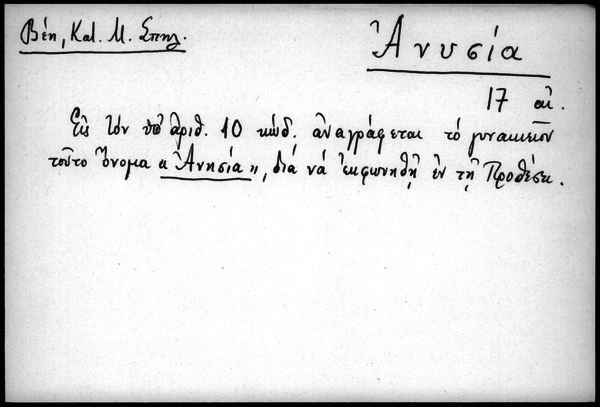 Βέη, Κατ. Μ. Σπηλ.
Ἀνυσία
17 αἰ.
Εἰς τὸν ὑπ' ἀριθ. 10 κώδ. ἀναγράφεται τὸ γυναικεῖον
τοῦτο ὄνομα «Ἀνησία», διὰ νὰ ἐκφωνηθῇ ἐν τῇ Προθέσει.